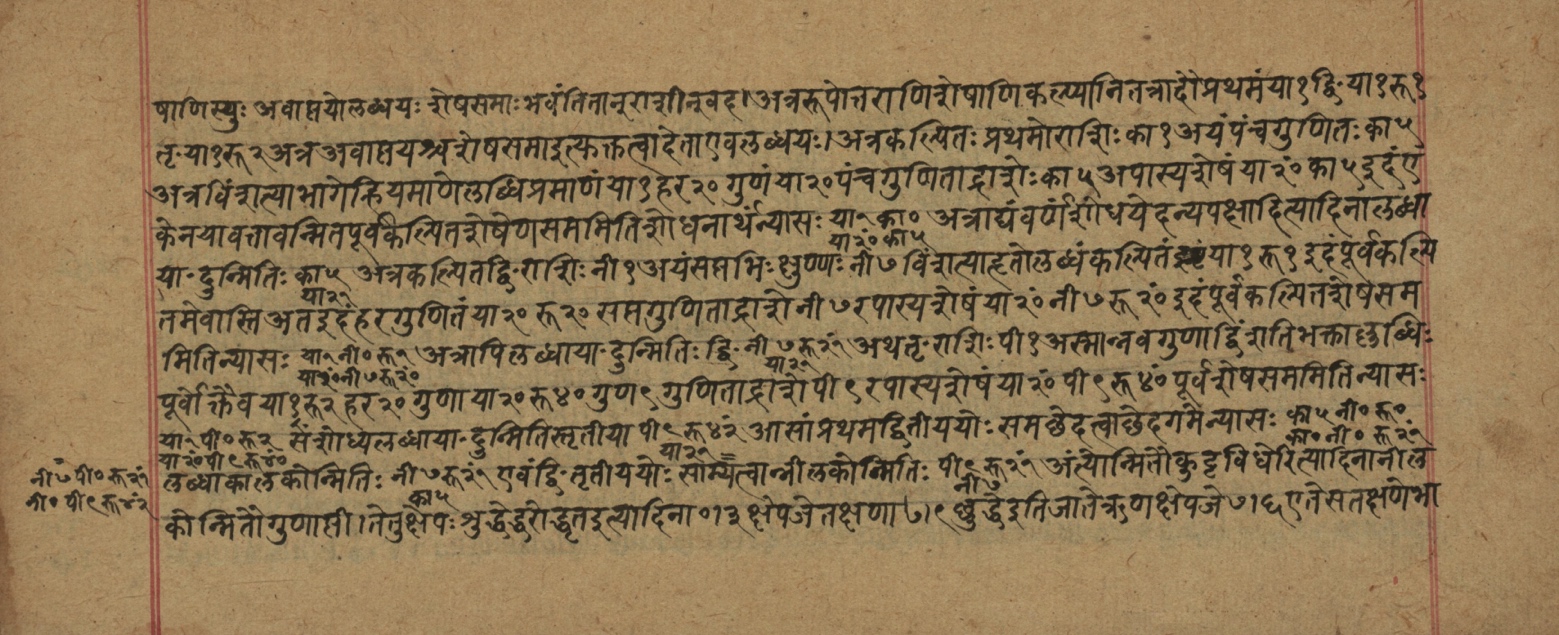 षाणिस्युः अवाप्तयोलब्धयः शेषसमाः भवंतितानूराशीन्वद। अत्ररूपोत्तराणिशेषाणिकल्प्यानितत्रादौप्रथमंया१द्वि·या१रू१
तृ·या१रू२अत्रअवाप्तयश्चशेषसमाइत्युक्तत्वादेताएवलब्धयः। अत्रकल्पितः प्रथमोराशिः का१अयंपंचगुणितः का५
अत्रविंशत्याभागेह्रियमाणेलब्धिप्रमाणंया१हर२०गुणंया२०पंचगुणिताद्राशेः का५अपास्यशेषंया२०ंका५इदंए
केनयावत्तावन्मितपूर्वकल्पितशेषेणसममितिशोधनार्थंन्यासः या१का० अत्राद्यंवर्णंशोधयेदन्यपक्षादित्यादिनालब्धा
या२०ंका५
या·दुन्मितिः का५ अत्रकल्पितद्वि·राशिः नी१अयंसप्तभिः क्षुण्णः नी७विंशत्याहृतोलब्धंकल्पितंया१रू१इदंपूर्वकल्पि
या२१
तमेवास्तिअतइदंहरगुणितंया२०रू२०सप्तगुणिताद्राशेनी७रपास्यशेषंया२०ंनी७रू२०ंइदंपूर्वकल्पितशेषसम
मितिन्यासः या१नी०रू१ अत्रापिलब्धाया·दुन्मितिः द्वि·नी७रू२१ं अथतृ·राशिः पी१अस्मान्नवगुणाद्विंशतिभक्ताल्लब्धिः
या२०ंनी७रू२०ं या२१
पूर्वोक्तैवया१रू२हर२०गुणाया२०रू४०गुण९गुणिताद्राशेपी९रपास्यशेषंया२०ंपी९रू४०ंपूर्वशेषसममितिन्यासः
या१पी०रू२ संशोध्यलब्धाया·दुन्मितिस्तृतीयापी९रू४२ं आसांप्रथमद्वितीययोः समछेदत्वाछेदगमेन्यासः का५नी०रू०
या२०ंपी९रू४०ं या२१ का०नी७रू२१ं
लब्धाकालकोन्मितिः नी७रू२१ं एवंद्वि·तृतीययोः साम्यत्वान्नीलकोन्मितिः पी९रू२१ं अंत्योन्मितौकुट्टविधेरित्यादिनानील
का५ नी७
नी७पी०रू२१ं
नी०पी९रू४२ं
कोन्मितौगुणाप्ती। तेतुक्षेपः शुद्धेद्धरोद्धृतइत्यादिना०।३क्षेपजेतक्षणा७।९च्छुद्धेइतिजातेऋणक्षेपजे७।६एतेसतक्षणेभा